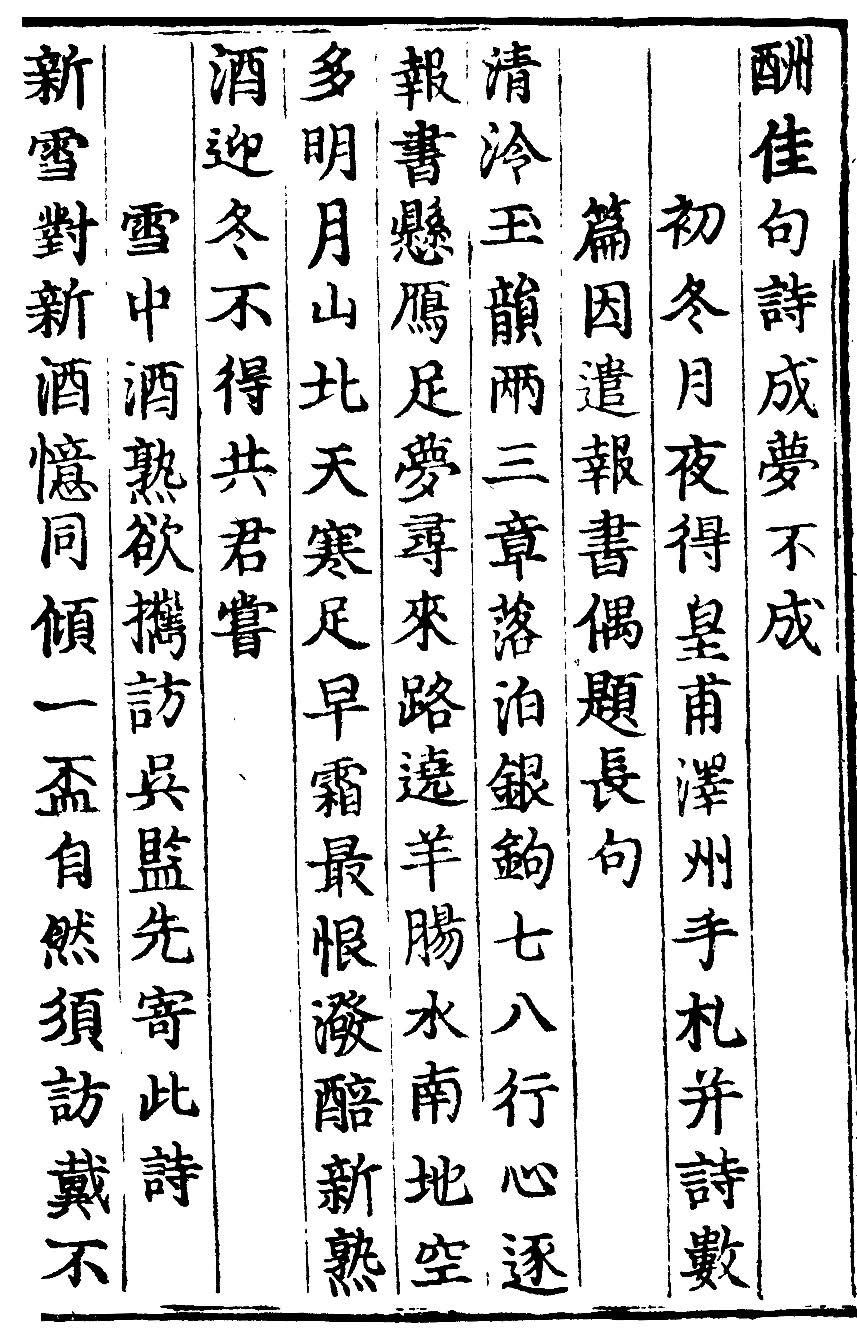 酬佳句詩成夢不成
初冬月夜得皇甫澤州手札并詩數
篇因遣報書偶題長句
清泠玉韻兩三章落泊銀鉤七八行心逐
報書懸鴈足夢尋來路遶羊腸水南地空
多明月山北天寒足早霜最恨潑醅新熟
酒迎冬不得共君嘗
雪中酒熟欲攜訪吳監先寄此詩
新雪對新酒憶同傾一盃自然須訪戴不